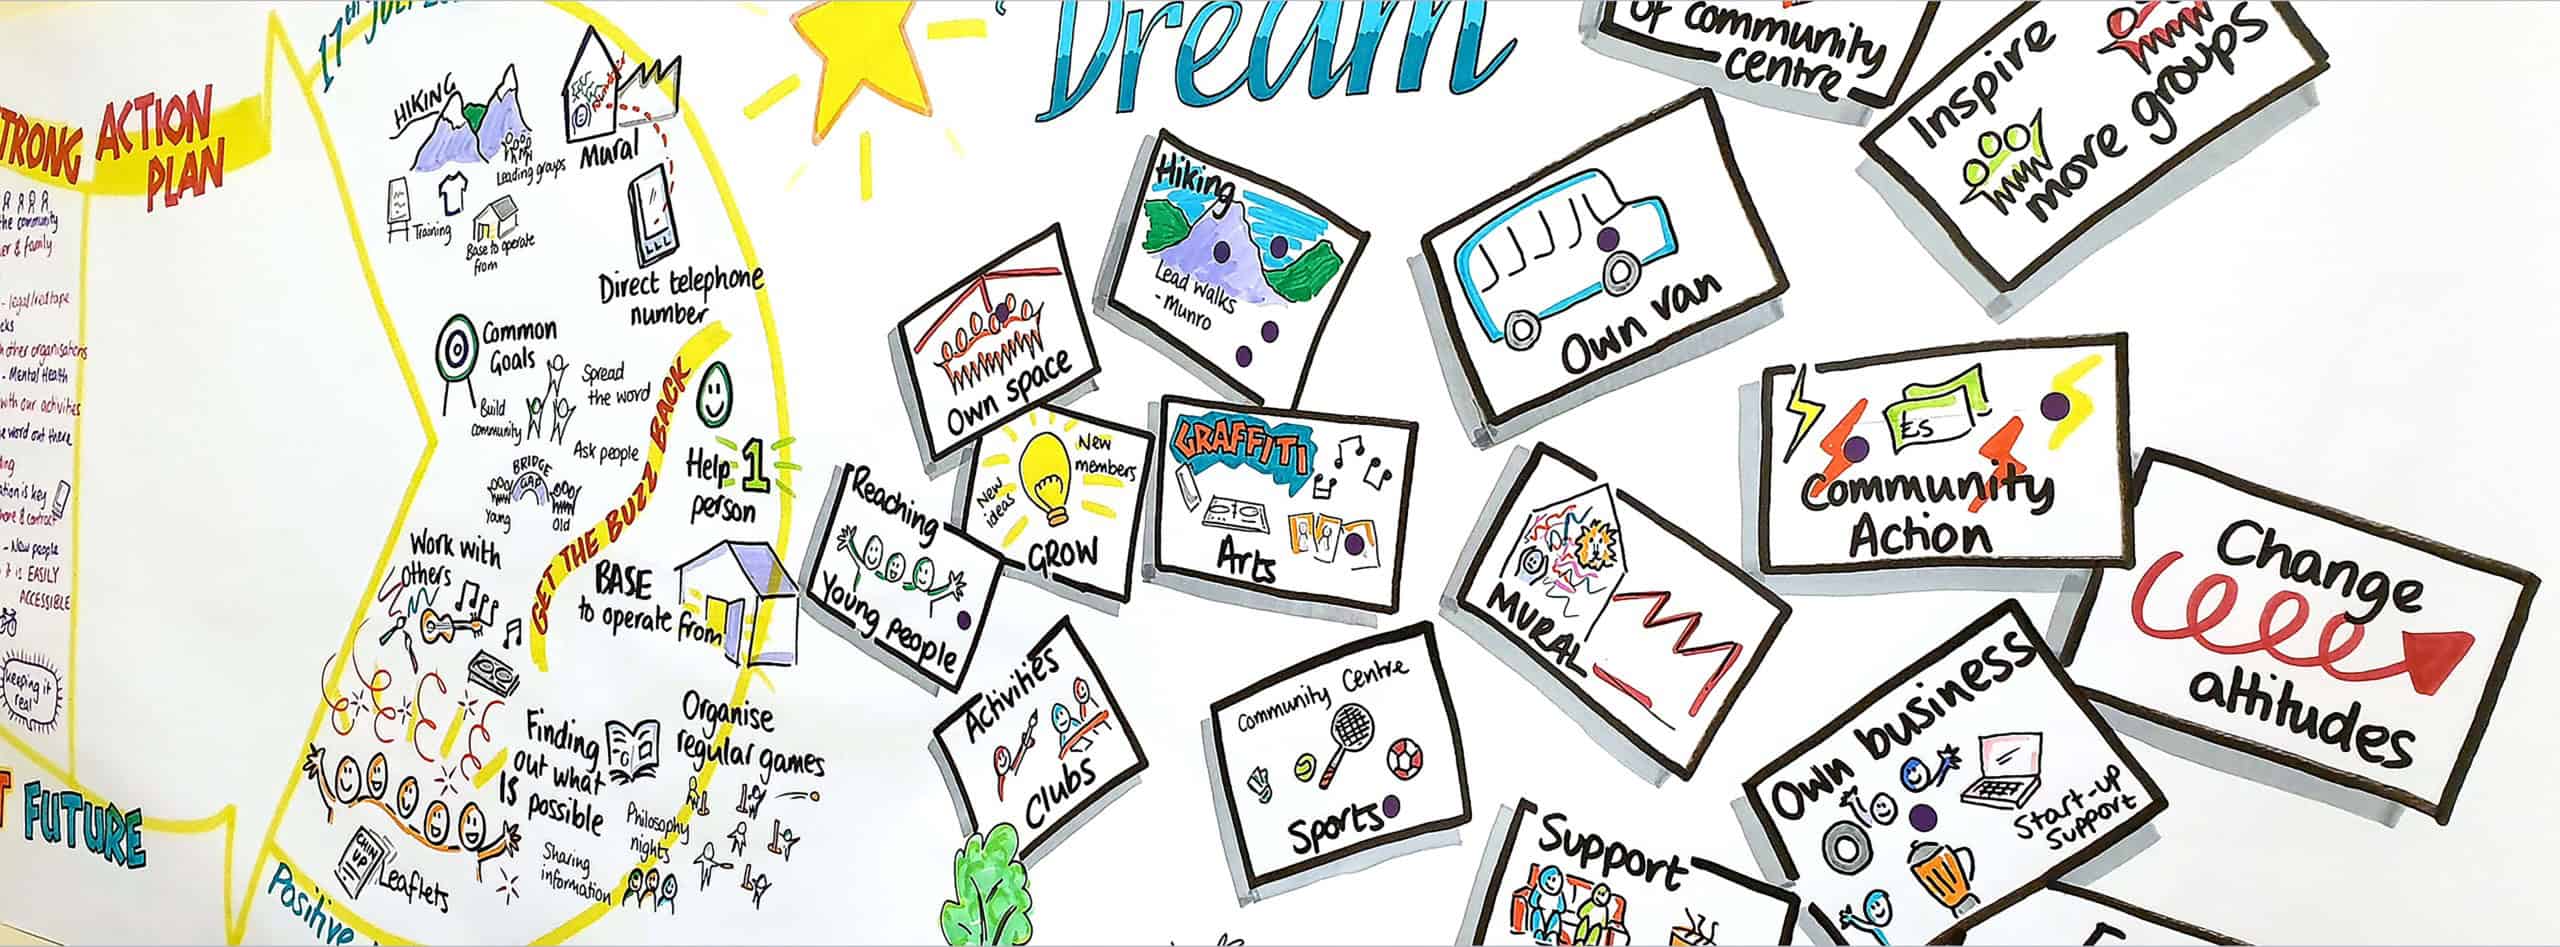 TRONG
ACTION
PLAN
the community
er & family
- legal/red tape
cks
other organisations
- Mental Health
with our activities
word out there
ing
ation is key
- New people
it is EASILY
ACCESSIBLE
keeping it
real
T FUTURE
17th JULY
HIKING
Leading groups
Training
Base to operate
from
Mural
Direct telephone
number
Common
Goals
Build
community
Spread
the word
Ask people
BRIDGE
GAP
Young
Old
GET THE BUZZ BACK
Help 1
person
BASE
to operate from
Work with
others
Finding
out what
IS possible
Organise
regular games
Philosophy
nights
Sharing
information
CHIN
UP
Leaflets
Positive
Dream
of community
centre
Inspire
more groups
Hiking
Lead walks
- Munro
Own space
Own van
New
ideas
New
members
GROW
GRAFFITI
Arts
Reaching
Young people
Community
Action
£s
MURAL
Change
attitudes
Activities
Clubs
Community Centre
Sports
Own business
Start-up
support
Support